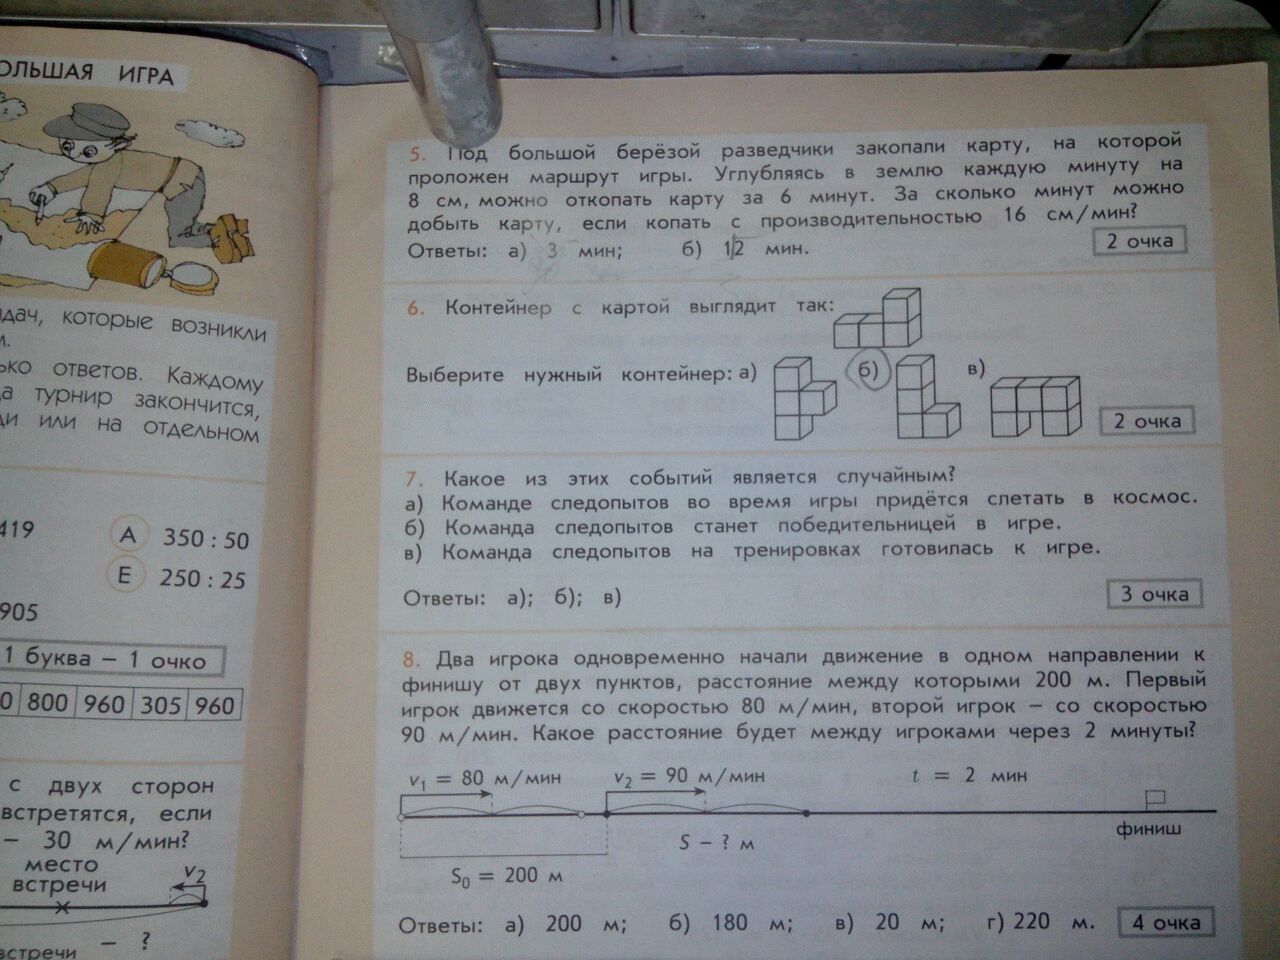 ОЛЬШАЯ ИГРА
дач, которые возникли
м.
ько ответов. Каждому
да турнир закончится,
ди или на отдельном
419
А 350 : 50
Е 250 : 25
905
1 буква – 1 очко
0 800 960 305 960
с двух сторон
встретятся, если
– 30 м/мин?
место
встречи
v2
встречи – ?
5. Под большой берёзой разведчики закопали карту, на которой
проложен маршрут игры. Углубляясь в землю каждую минуту на
8 см, можно откопать карту за 6 минут. За сколько минут можно
добыть карту, если копать с производительностью 16 см/мин?
Ответы: а) 3 мин; б) 12 мин.
2 очка
6. Контейнер с картой выглядит так:
Выберите нужный контейнер: а) б) в)
2 очка
7. Какое из этих событий является случайным?
а) Команде следопытов во время игры придётся слетать в космос.
б) Команда следопытов станет победительницей в игре.
в) Команда следопытов на тренировках готовилась к игре.
Ответы: а); б); в)
3 очка
8. Два игрока одновременно начали движение в одном направлении к
финишу от двух пунктов, расстояние между которыми 200 м. Первый
игрок движется со скоростью 80 м/мин, второй игрок – со скоростью
90 м/мин. Какое расстояние будет между игроками через 2 минуты?
v1 = 80 м/мин v2 = 90 м/мин t = 2 мин
финиш
S – ? м
S0 = 200 м
Ответы: а) 200 м; б) 180 м; в) 20 м; г) 220 м.
4 очка